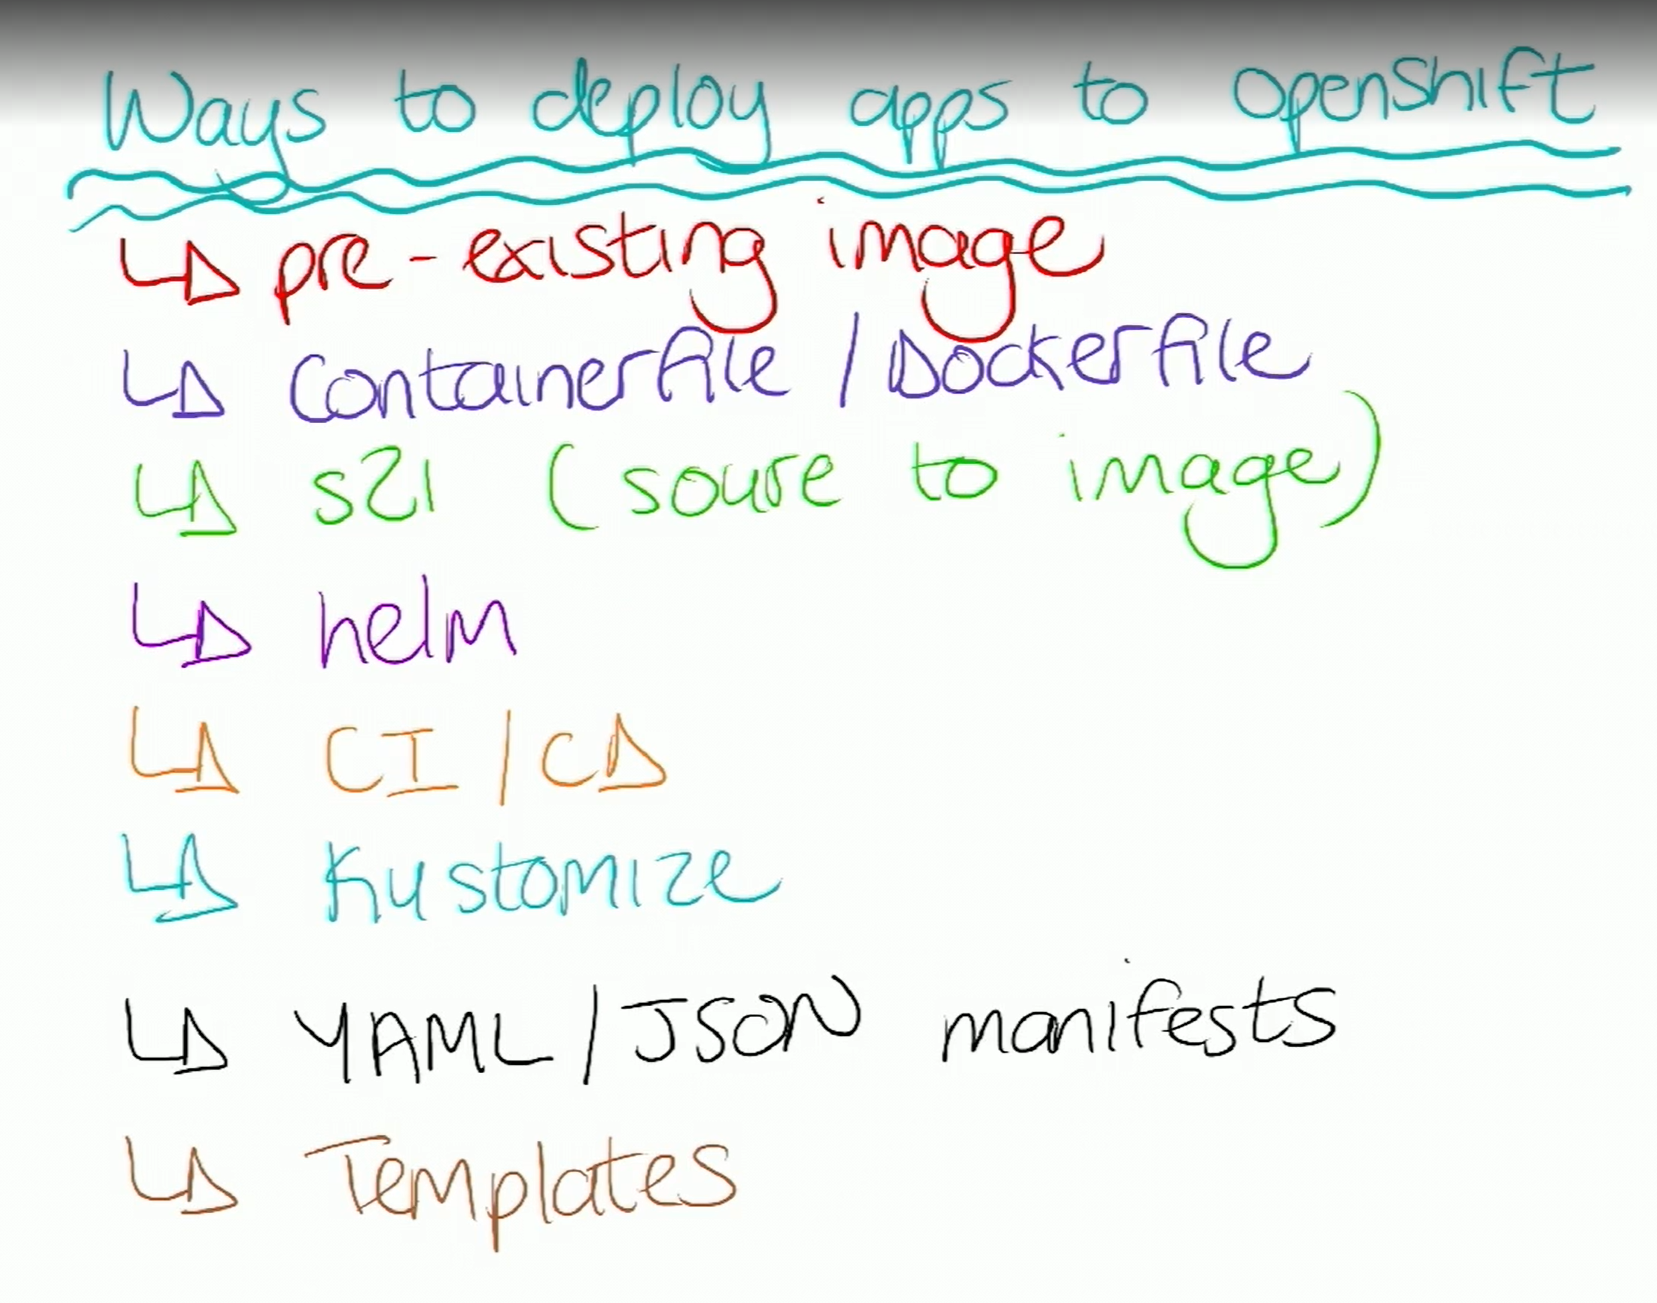 Ways to deploy apps to OpenShift
pre-existing image
Containerfile / Dockerfile
s2i (soure to image)
helm
CI/CD
Kustomize
YAML/JSON manifests
Templates